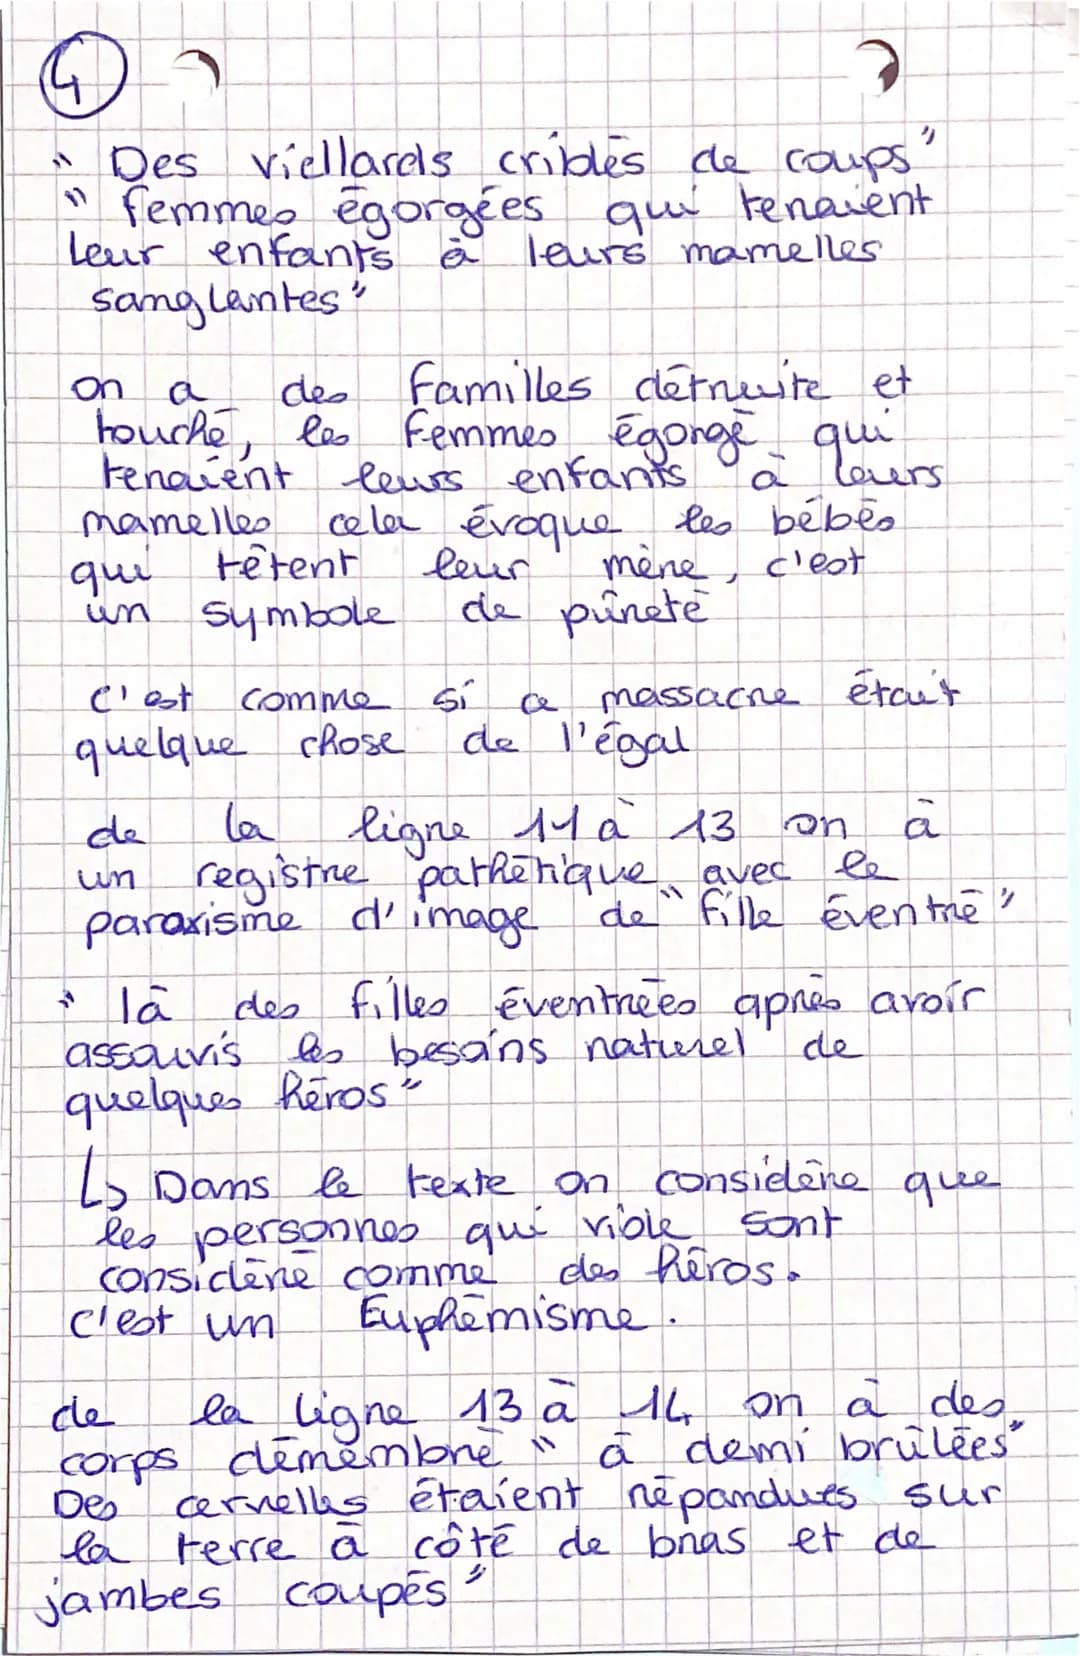 4
" Des viellards criblés de coups"
" femmes égorgées qui tenaient
leur enfants à leurs mamelles
sanglantes"
on a des familles détruite et
touché, les femmes égorgé qui
tenaient leurs enfants à leurs
mamelles cela évoque les bébés
qui têtent leur mère, c'est
un symbole de pureté
c'est comme si ce massacre était
quelque chose de l'égal
de la ligne 11 à 13 on à
un registre pathétique avec le
paraxisme d'image de "fille éventré"
" là des filles éventrées après avoir
assouvis les besoins naturel de
quelques héros"
↳ Dans le texte on considère que
les personnes qui viole sont
considéré comme des héros.
c'est un Euphémisme.
de la ligne 13 à 14 on à des
corps démembré " à demi brûlées"
Des cervelles étaient répandues sur
la terre à côté de bras et de
jambes coupés"